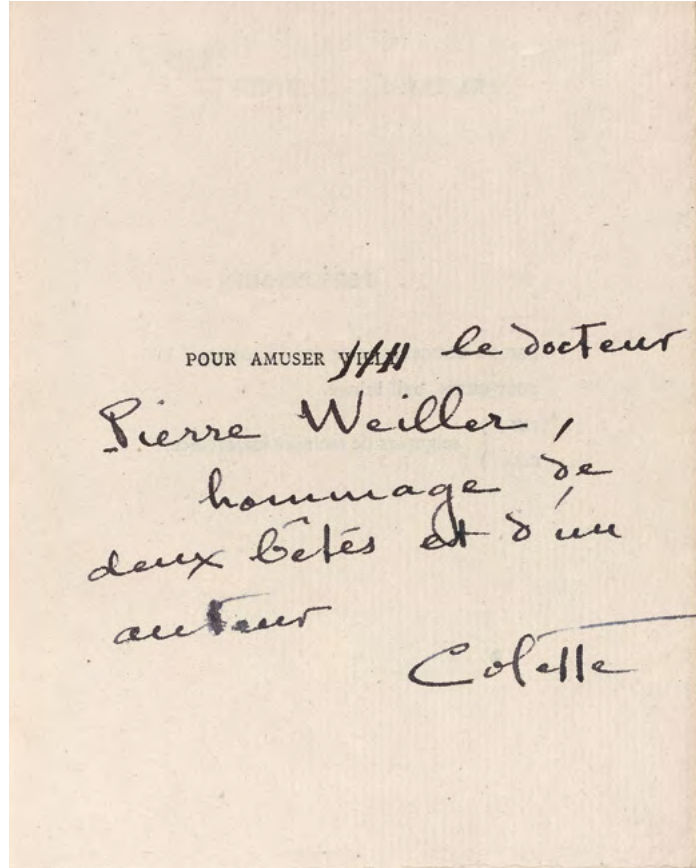 POUR AMUSER WILLY le docteur
Pierre Weiller,
hommage de
deux bêtes et d'un
auteur
Colette